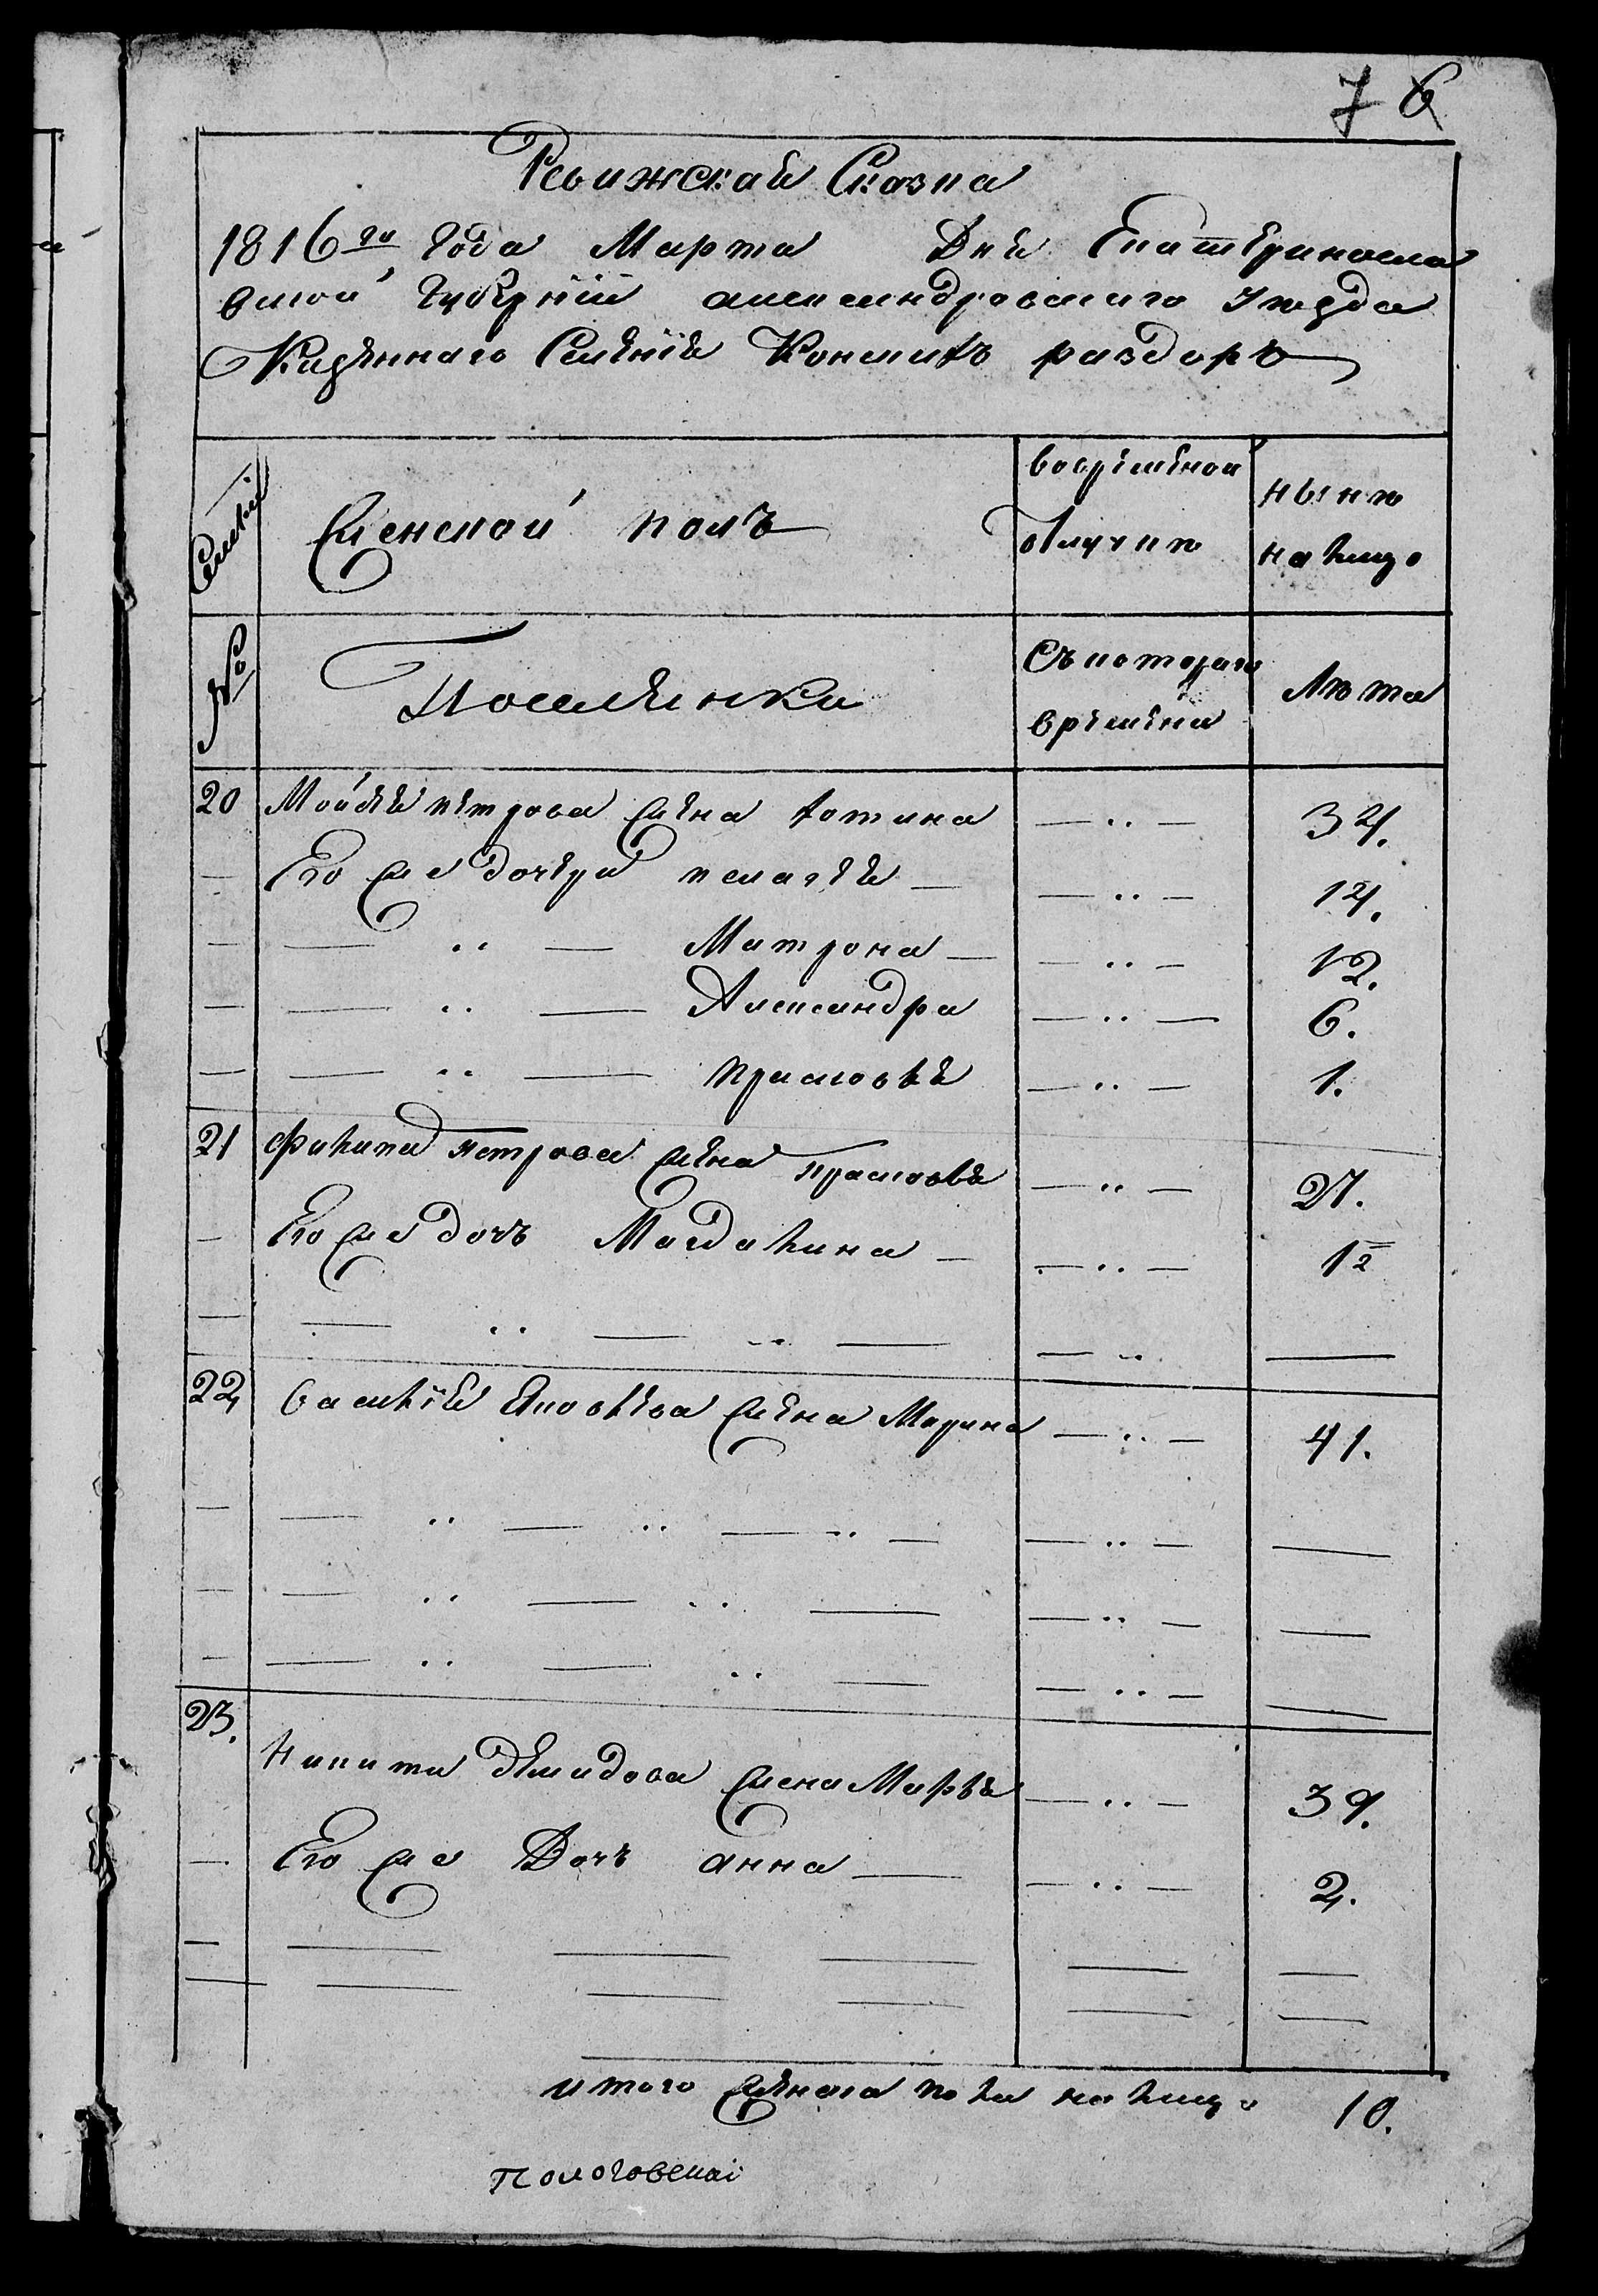 7 6
Ревижская Сказка
1816го Года Марта Дня Екатеринославской Губернии александровскаго Уезда
Казеннаго Селения Конских раздоръ
Семьи
Женской полъ
вовременой отлучки
ныне налицо
№
Поселянки
Съ котораго времени
Лѣта
20 Мойсея петрова жена фотина — .. — 34.
— Его же дочери пелагея — — .. — 14.
— — .. — Матрона — — .. — 12.
— — .. — Александра — .. — 6.
— — .. — прасковея — .. — 1.
21 Филипа петрова жена прасковя — .. — 27.
— Его же дочь Магдалина — — .. — 1/2
— — .. — .. — — ..  —
22 Василия Яковлева жена Марина — .. — 41.
— — .. — .. — .. — — .. — —
— — .. — .. — — .. — —
— — .. — .. — — .. — —
23. Никита демидова жена Марья — .. — 39.
— Его же Дочь анна — — .. — 2.
итого женска пола налицо 10.
Пологовский